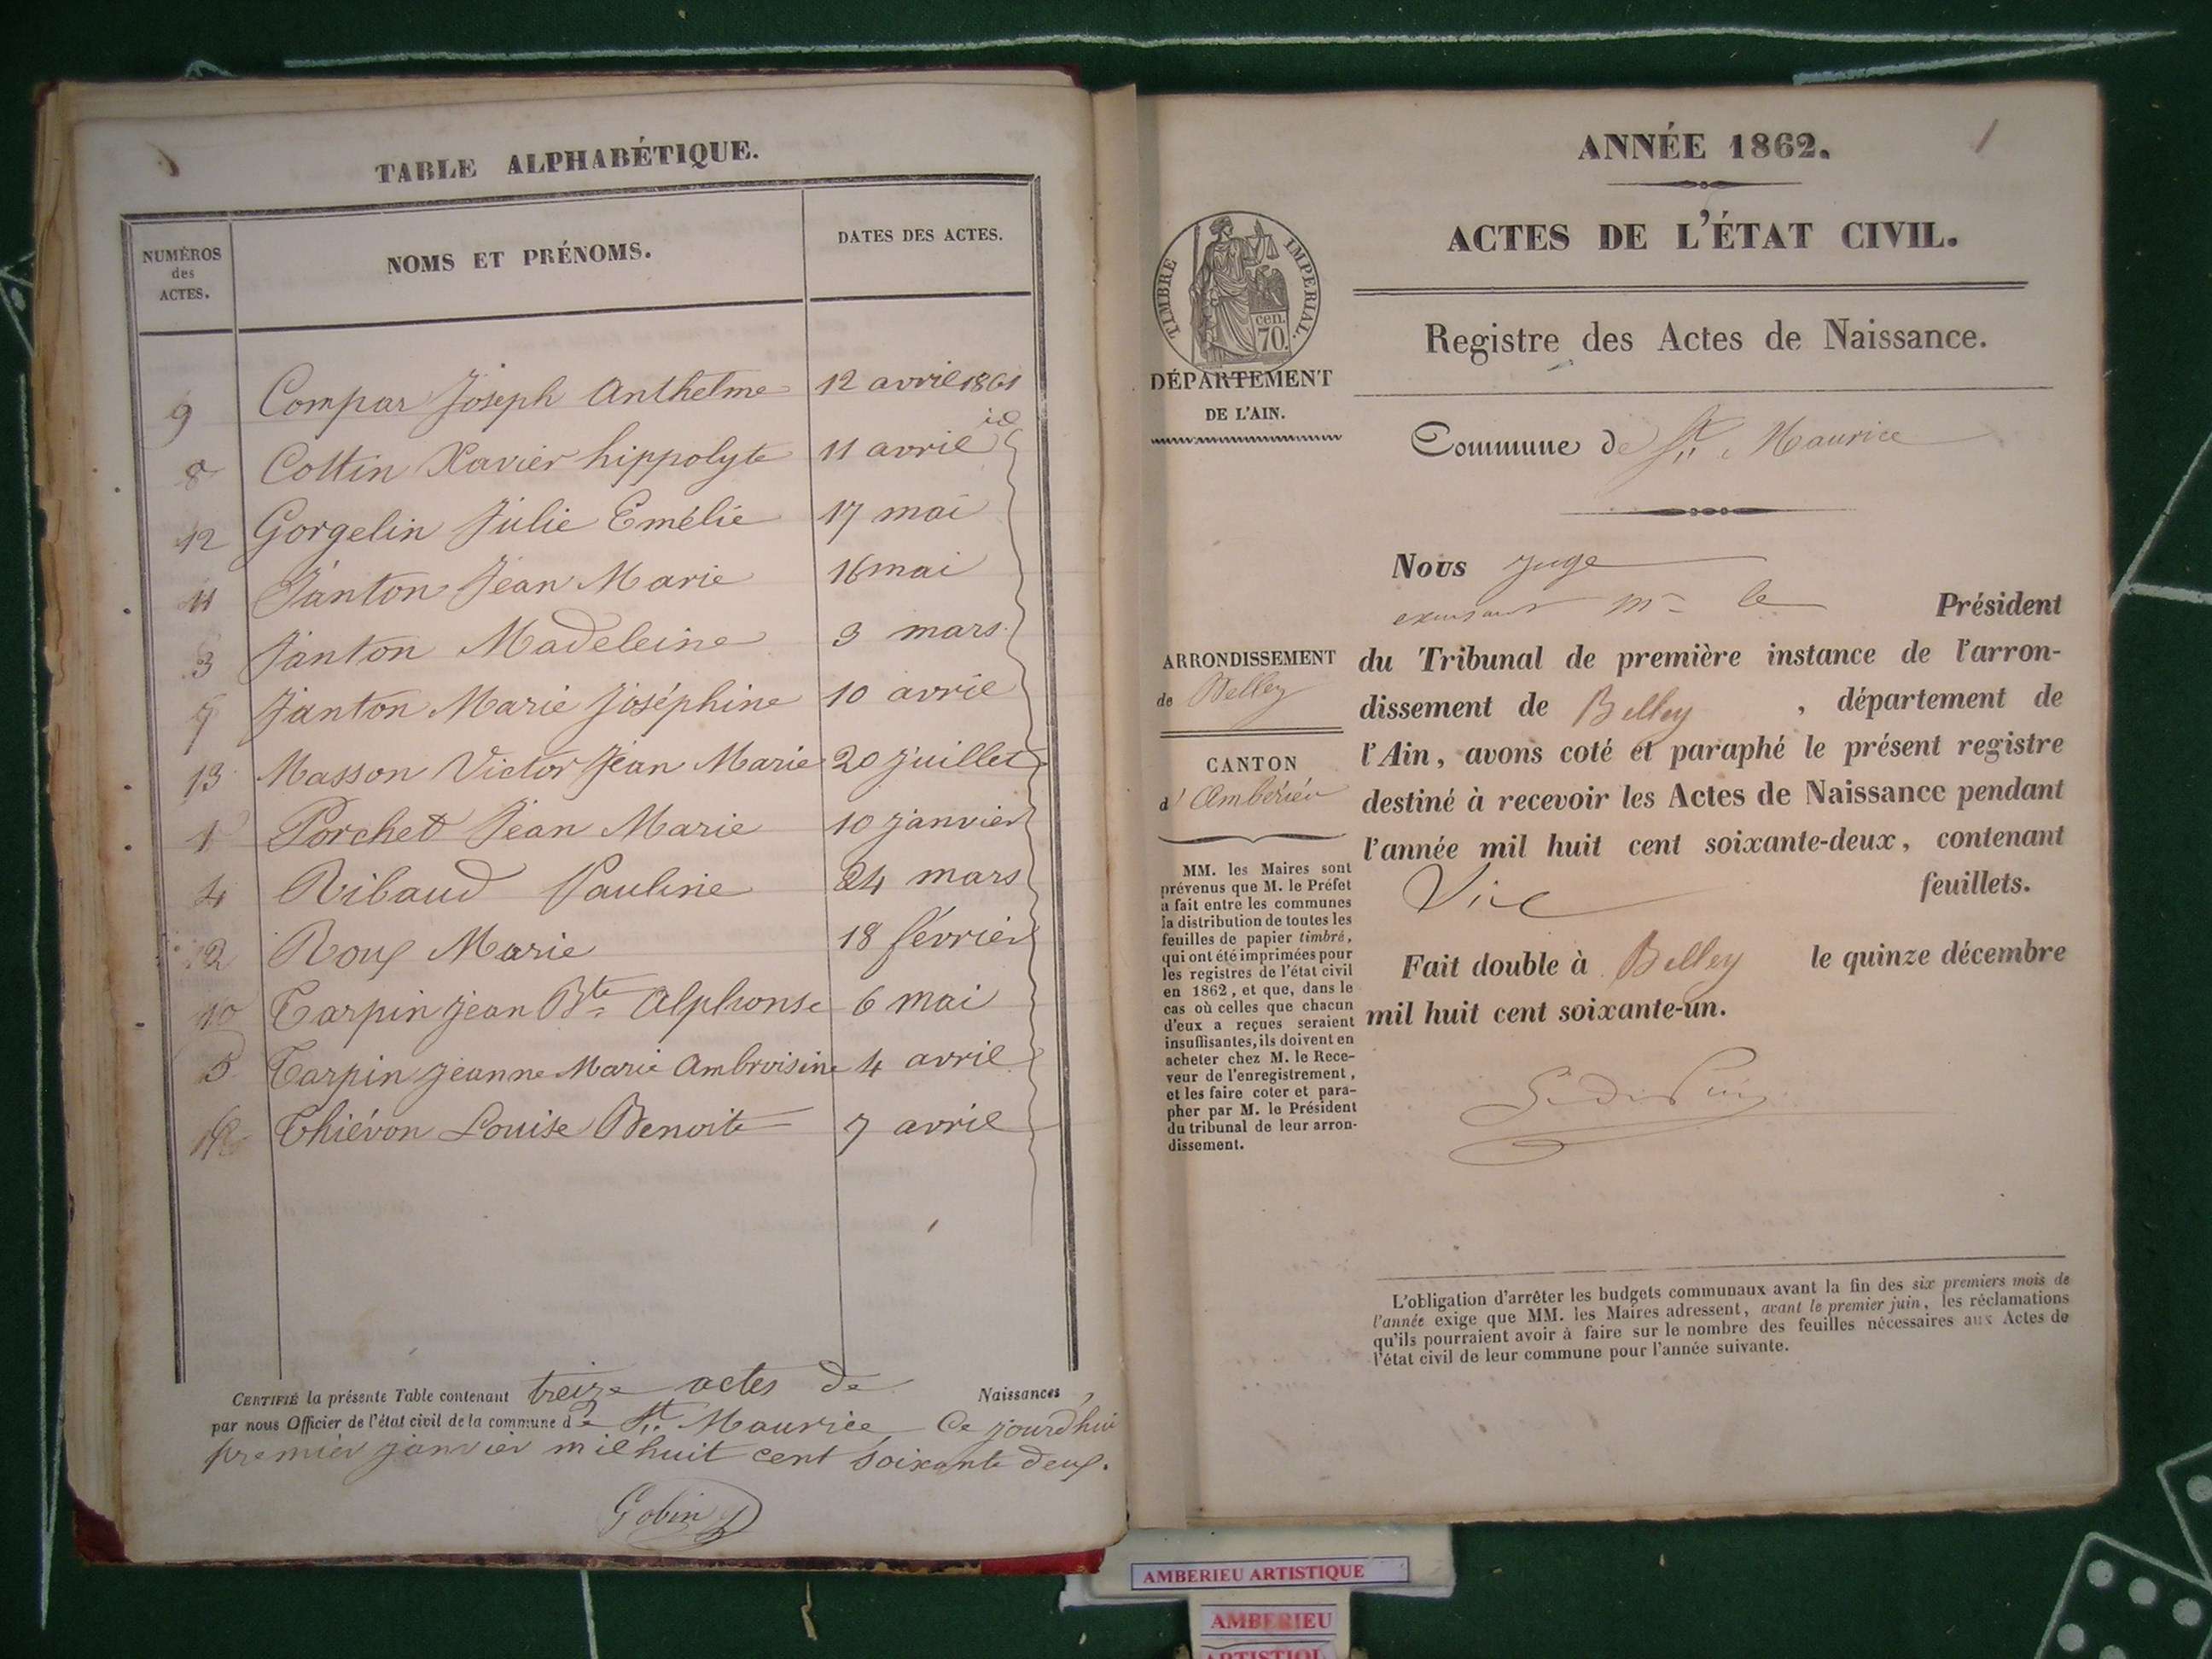 TABLE ALPHABÉTIQUE.
NUMÉROS
des
ACTES.
NOMS ET PRÉNOMS.
DATES DES ACTES.
9 Compar Joseph Anthelme 12 avril 1861
8 Cottin Xavier hippolyte 11 avril id
12 Gorgelin Julie Emélie 17 mai
11 Janton Jean Marie 16 mai
3 Janton Madeleine 3 mars
7 Janton Marie Joséphine 10 avril
13 Masson Victor Jean Marie 20 juillet
1 Porchet Jean Marie 10 janvier
4 Ribaud Pauline 24 mars
2 Roux Marie 18 février
10 Tarpin jean Bte Alphonse 6 mai
5 Tarpin jeanne Marie Ambroisine 4 avril
Thiévon Louise Benoite 7 avril
CERTIFIÉ la présente Table contenant treize actes de Naissances,
par nous Officier de l'état civil de la commune de St. Maurice Ce jourd'hui
premier janvier mil huit cent soixante deux.
Gobin
1
ANNÉE 1862.
ACTES DE L'ÉTAT CIVIL.
TIMBRE IMPERIAL.
cen.
70.
DÉPARTEMENT
DE L'AIN.
Registre des Actes de Naissance.
Commune de St. Maurice
ARRONDISSEMENT
de Belley
CANTON
d'Ambérieu
MM. les Maires sont
prévenus que M. le Préfet
a fait entre les communes
la distribution de toutes les
feuilles de papier timbré,
qui ont été imprimées pour
les registres de l'état civil
en 1862, et que, dans le
cas où celles que chacun
d'eux a reçues seraient
insuffisantes, ils doivent en
acheter chez M. le Rece-
veur de l'enregistrement,
et les faire coter et para-
pher par M. le Président
du tribunal de leur arron-
dissement.
Nous Juge
Mr le Président
du Tribunal de première instance de l'arron-
dissement de Belley, département de
l'Ain, avons coté et paraphé le présent registre
destiné à recevoir les Actes de Naissance pendant
l'année mil huit cent soixante-deux, contenant
feuillets.
Fait double à Belley le quinze décembre
mil huit cent soixante-un.
L'obligation d'arrêter les budgets communaux avant la fin des six premiers mois de
l'année exige que MM. les Maires adressent, avant le premier juin, les réclamations
qu'ils pourraient avoir à faire sur le nombre des feuilles nécessaires aux Actes de
l'état civil de leur commune pour l'année suivante.
AMBERIEU ARTISTIQUE
AMBERIEU
ARTISTIQU